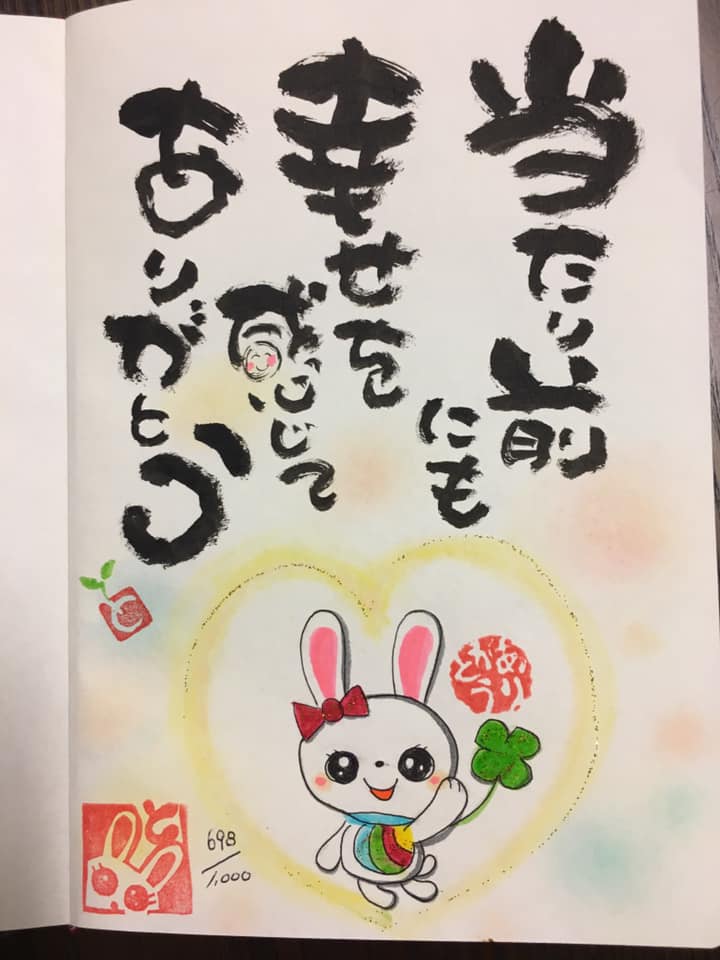 当たり前
にも
幸せを
感じて
ありがとう
ありがとう
と
と
698/1,000